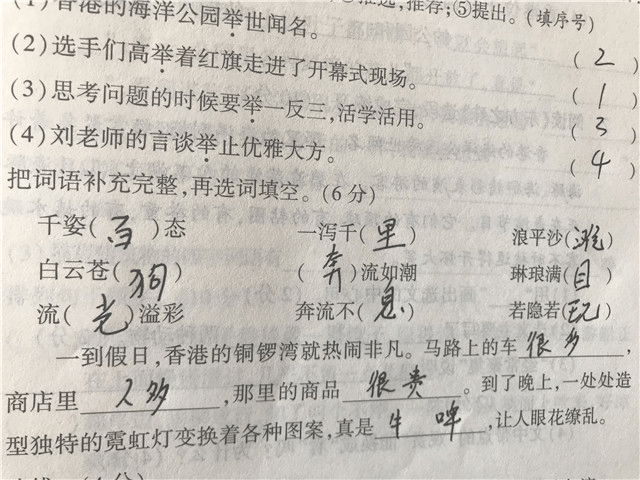 (1)香港的海洋公园举世闻名。
推荐;⑤提出。(填序号)
(2)选手们高举着红旗走进了开幕式现场。 (2)
(3)思考问题的时候要举一反三,活学活用。 (1)
(3)
(4)刘老师的言谈举止优雅大方。 (4)
把词语补充完整,再选词填空。(6分)
千姿(百)态 一泻千(里) 浪平沙(滩)
白云苍(狗) (奔)流如潮 琳琅满(目)
流(光)溢彩 奔流不(息) 若隐若(玩)
一到假日,香港的铜锣湾就热闹非凡。马路上的车很多,
商店里人多,那里的商品很贵。到了晚上,一处处造
型独特的霓虹灯变换着各种图案,真是牛啤,让人眼花缭乱。